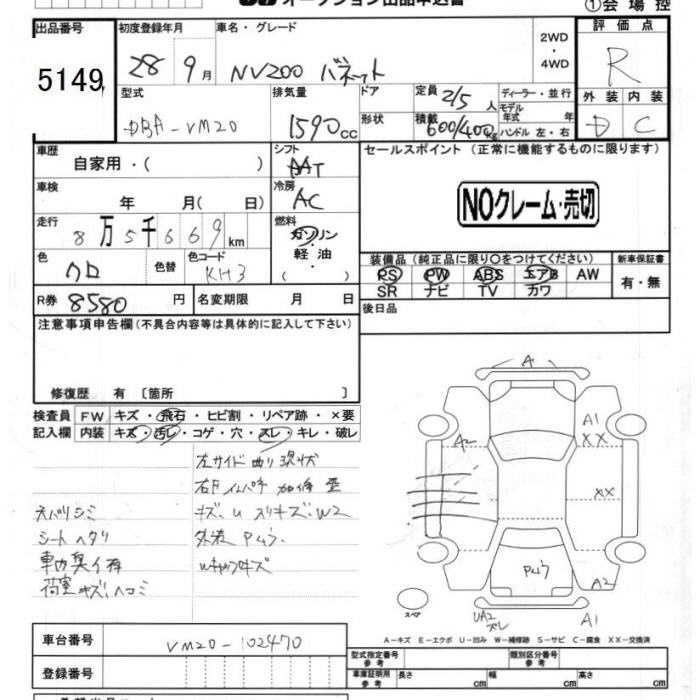 オークション出品申込書
①会場控
出品番号
5149
初度登録年月
28 9月
車名・グレード
NV200 バネット
2WD
・
4WD
評価点
R
外装 内装
D C
型式
DBA-VM20
排気量
1590cc
ドア
形状
定員 2/5 人
積載 600/400kg
ディーラー・並行
モデル年式 年
ハンドル 左・右
車歴
自家用・( )
シフト
AT
車検
年 月( 日)
冷房
AC
走行
8万5千669km
燃料
ガソリン
・
軽油
( )
色
クロ
色替
色コード
KH3
R券 8580 円
名変期限 月 日
セールスポイント (正常に機能するものに限ります)
NOクレーム・売切
装備品(純正品に限り○をつけてください)
PS PW ABS エアB AW
SR ナビ TV カワ
新車保証書
有・無
後日品
注意事項申告欄(不具合内容等は具体的に記入して下さい)
修復歴 有〔箇所 〕
検査員記入欄
FW キズ・飛石・ヒビ割・リペア跡・×要
内装 キズ・汚レ・コゲ・穴・スレ・キレ・破レ
左サイド曲り現状
キズ、U スリキズ、W2
シートヘタリ
荷室キズ、ヘコミ
A
A1
XX
A2
XX
A2
A1
UA2
スレ
スペア
A-キズ E-エクボ U-凹み W-補修跡 S-サビ C-腐食 XX-交換済
車台番号
VM20-102470
登録番号
型式指定番号
参考
類別区分番号
参考
車庫証明用
参考
長さ cm
幅 cm
高さ cm